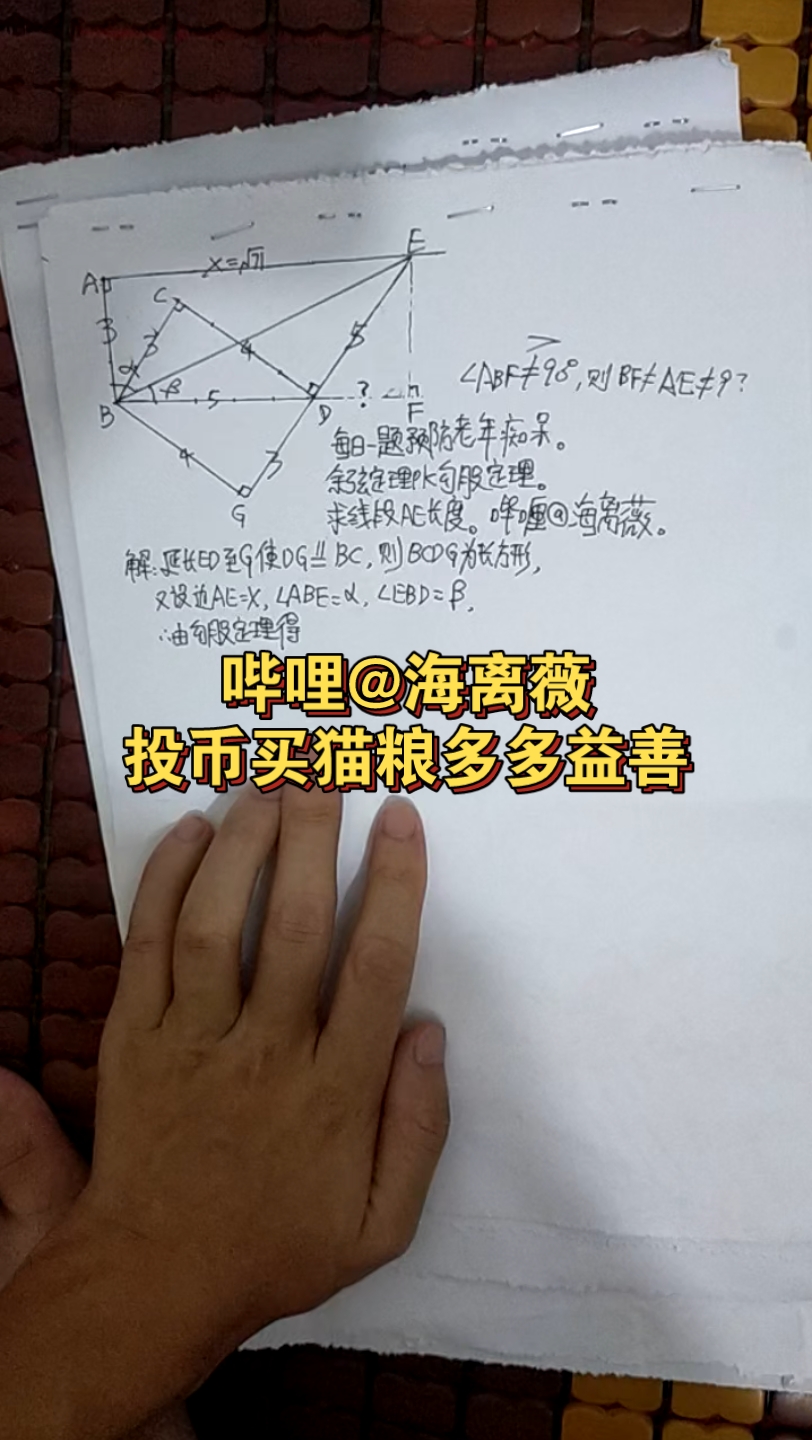 E
x=√71
A
C
3
3
4
5
α
β
B
5
D
?
F
4
3
G
>
∠ABF≠90°,则BF≠AE≠9?
每日一题预防老年痴呆。
余弦定理PK勾股定理。
求线段AE长度。哔哩@海离薇。
解:延长ED至G使DG⫫BC,则BCDG为长方形,
又设边AE=X,∠ABE=α,∠EBD=β,
∴由勾股定理得
哔哩@海离薇
投币买猫粮多多益善